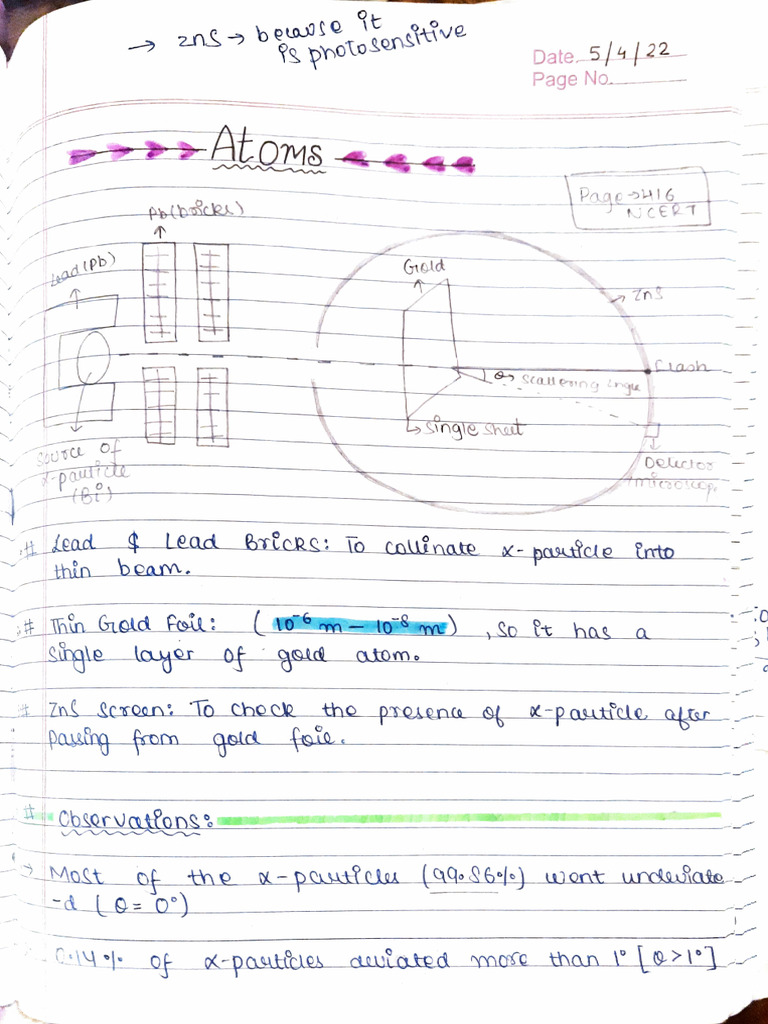 → ZnS → because it
is photosensitive
Date. 5/4/22
Page No.
Atoms
Page → 416
NCERT
Pb(bricks)
Lead (Pb)
Gold
ZnS
Flash
θ → scattering angle
→ single sheet
Source of
α-particle
(Bi)
Detector
microscop
# Lead & Lead Bricks: To collinate α-particle into
thin beam.
# Thin Gold Foil: (10⁻⁶ m – 10⁻⁸ m), so it has a
single layer of gold atom.
# ZnS screen: To check the presence of α-particle after
passing from gold foil.
# Observations:
→ Most of the α-particles (99.86%) went undeviate
-d (θ = 0°)
0.14% of α-particles deviated more than 1° [θ>1°]